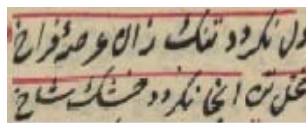 دل نکردد تنک زان عرصهٔ فراخ
نخل تن انجا نکردد خشک شاخ